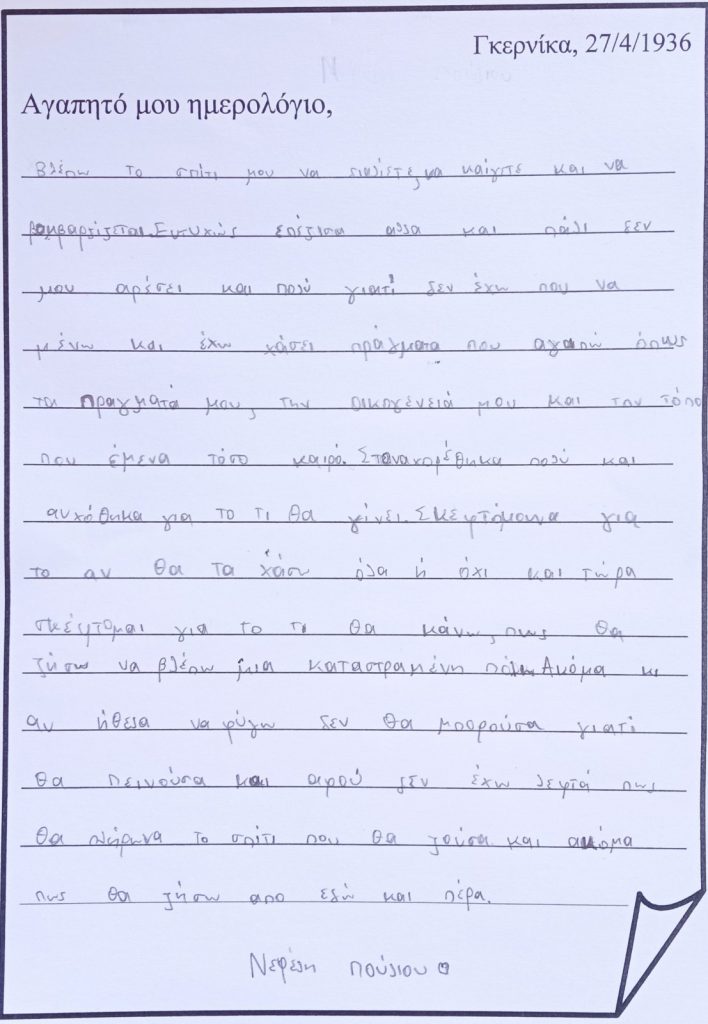 Γκερνίκα, 27/4/1936
Αγαπητό μου ημερολόγιο,
Βλέπω το σπίτι μου να να καίγετε και να
βομβαρδίζεται. Ευτυχώς επέζισα αλλα και πάλι δεν
μου αρέσει και πολύ γιατί δεν έχω που να
μένω και έχω χάσει πράγματα που αγαπώ όπως
τα πραγματά μου, την οικογένειά μου και τον τόπο
που έμενα τόσο καιρό. Στεναχορέθηκα πολύ και
ανχόθηκα για το τι θα γίνει. Σκεφτόμουνα για
το αν θα τα χάσω όλα ή όχι και τώρα
σκέφτομαι για το τι θα κάνω, πως θα
ζήσω να βλέπω μια καταστραμένη πόλη. Ακόμα κι
αν ήθελα να φύγω δεν θα μπορούσα γιατί
θα πεινούσα και αφού δεν έχω λεφτά πως
θα πλήρωνα το σπίτι που θα ζούσα και ακόμα
πως θα ζήσω απο εδώ και πέρα.
Νεφέλη Πούλιου